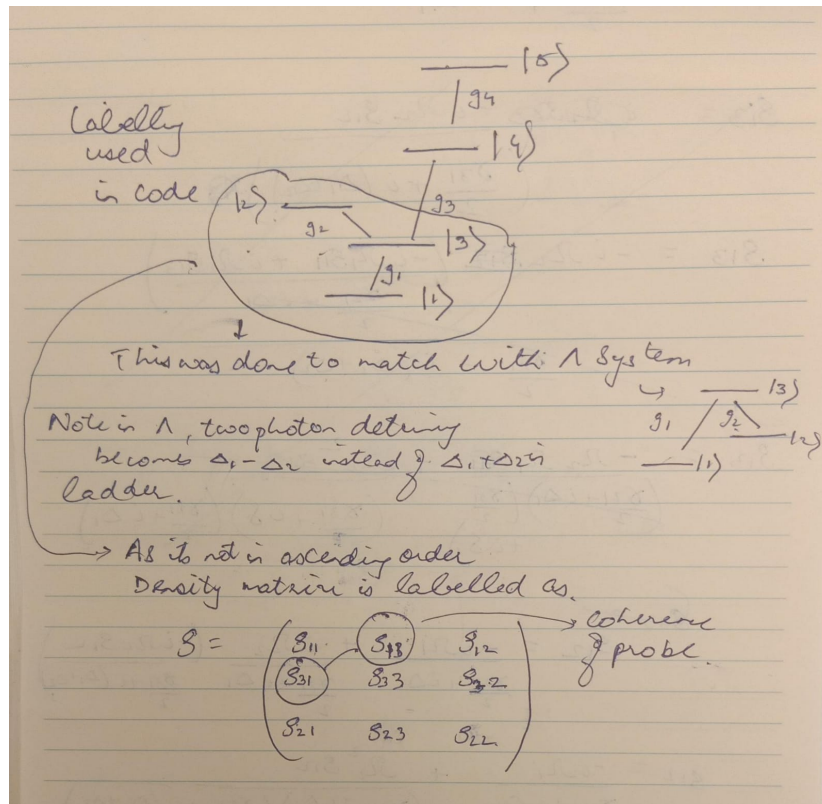 |5⟩
g4
Labelling
used
in code
|4⟩
|2⟩
g2
g3
|3⟩
g1
|1⟩
This was done to match with Λ System
|3⟩
g1
g2
|2⟩
|1⟩
Note in Λ, two photon detuning
becomes Δ1 - Δ2 instead of Δ1 + Δ2 in
ladder.
As its not in ascending order
Density matrix is labelled as.
coherence
of probe.
ρ = ( ρ11 ρ13 ρ12
ρ31 ρ33 ρ32
ρ21 ρ23 ρ22 )